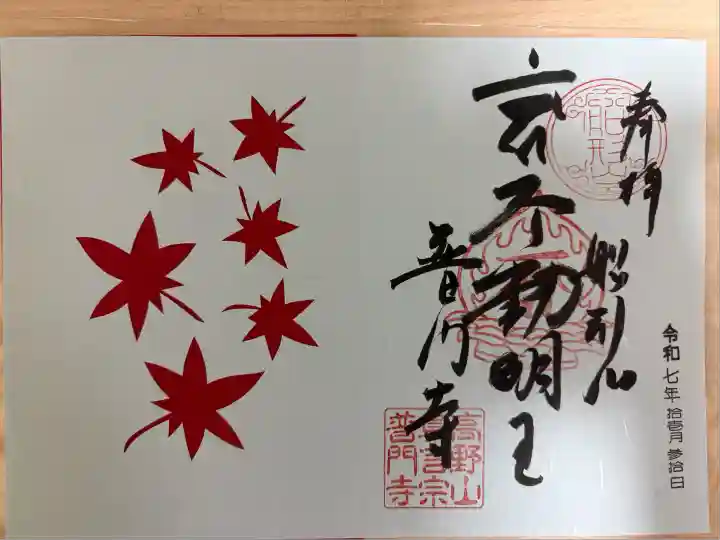 奉拝
船形山
令和七年 拾壹月 參拾日
不動明王
普門寺
船形山
高野山
真言宗
普門寺